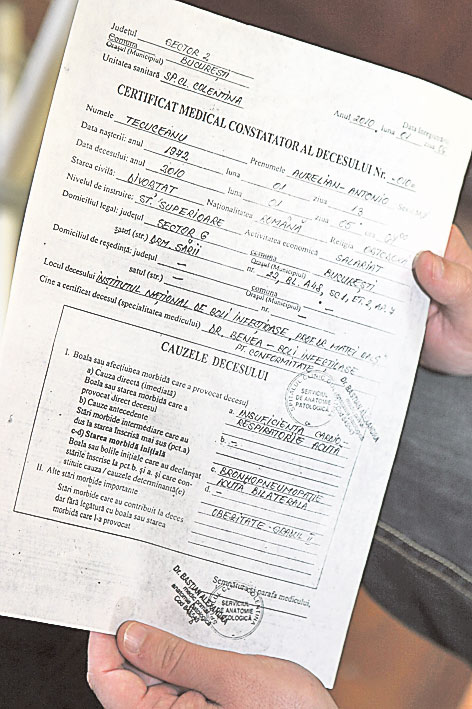 Județul
SECTOR 2
Comuna
Orașul (Municipiul) BUCUREȘTI
Unitatea sanitară SP. CL. COLENTINA
Anul 2010, luna 01
CERTIFICAT MEDICAL CONSTATATOR AL DECESULUI Nr.
Numele TECUCEANU Prenumele AURELIAN-ANTONIO
Data nașterii: anul 1972 luna 01 ziua 13
Data decesului: anul 2010 luna 01 ziua 05
Starea civilă: DIVORȚAT Naționalitatea ROMÂNĂ Religia
Nivelul de instruire: ST. SUPERIOARE Activitatea economică SALARIAT
Domiciliul legal: județul SECTOR 6 comuna
Orașul (Municipiul) BUCUREȘTI
satul (str.) DRM. SĂRII nr. 22, BL. A48, SC. 1, ET. 2, AP. 7
Domiciliul de reședință: județul — comuna
Orașul (Municipiul) —
satul (str.) — nr. —
Locul decesului INSTITUTUL NAȚIONAL DE BOLI INFECȚIOASE, PROF. DR. MATEI BALȘ
Cine a certificat decesul (specialitatea medicului) DR. BENEA - BOLI INFECȚIOASE
PT. CONFORMITATE
CAUZELE DECESULUI
I. Boala sau afecțiunea morbidă care a provocat decesul
a) Cauza directă (imediată)
Boala sau starea morbidă care a
provocat direct decesul
a. INSUFICIENȚĂ CARDIO-
RESPIRATORIE ACUTĂ
b) Cauze antecedente
Stări morbide intermediare care au
dus la starea înscrisă mai sus (pct.a)
b. —
c-d) Starea morbidă inițială
Boala sau bolile inițiale care au declanșat
stările înscrise la pct b. și a. și care con-
stituie cauza / cauzele determinantă(e)
c. BRONHOPNEUMOPATIE
ACUTĂ BILATERALĂ
d. —
II. Alte stări morbide importante
Stări morbide care au contribuit la deces
dar fără legătură cu boala sau starea
morbidă care l-a provocat
OBEZITATE - GRADUL II
SERVICIUL
DE ANATOMIE
PATOLOGICĂ
Semnătura și parafa medicului,
Dr. BASTIAN
SERVICIUL
DE ANATOMIE
PATOLOGICĂ